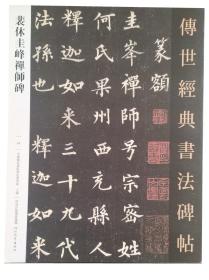 傳世經典書法碑帖
篆額
圭峯禪師号宗密姓
何氏果州西充縣人
釋迦如来三十九代
法孫也釋迦如
裴休圭峰禪師碑